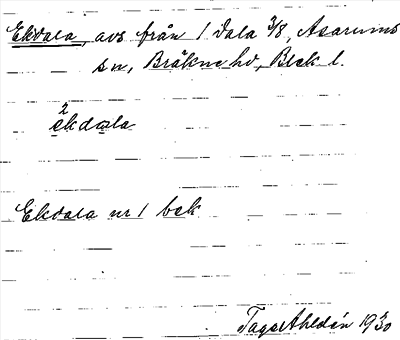 Ekdala, avs från 1 Dala 3/8, Asarums
sn, Bräkne hd, Blek l.
2
ekdala
Ekdala nr 1 bek
Tage Ahldén 1930